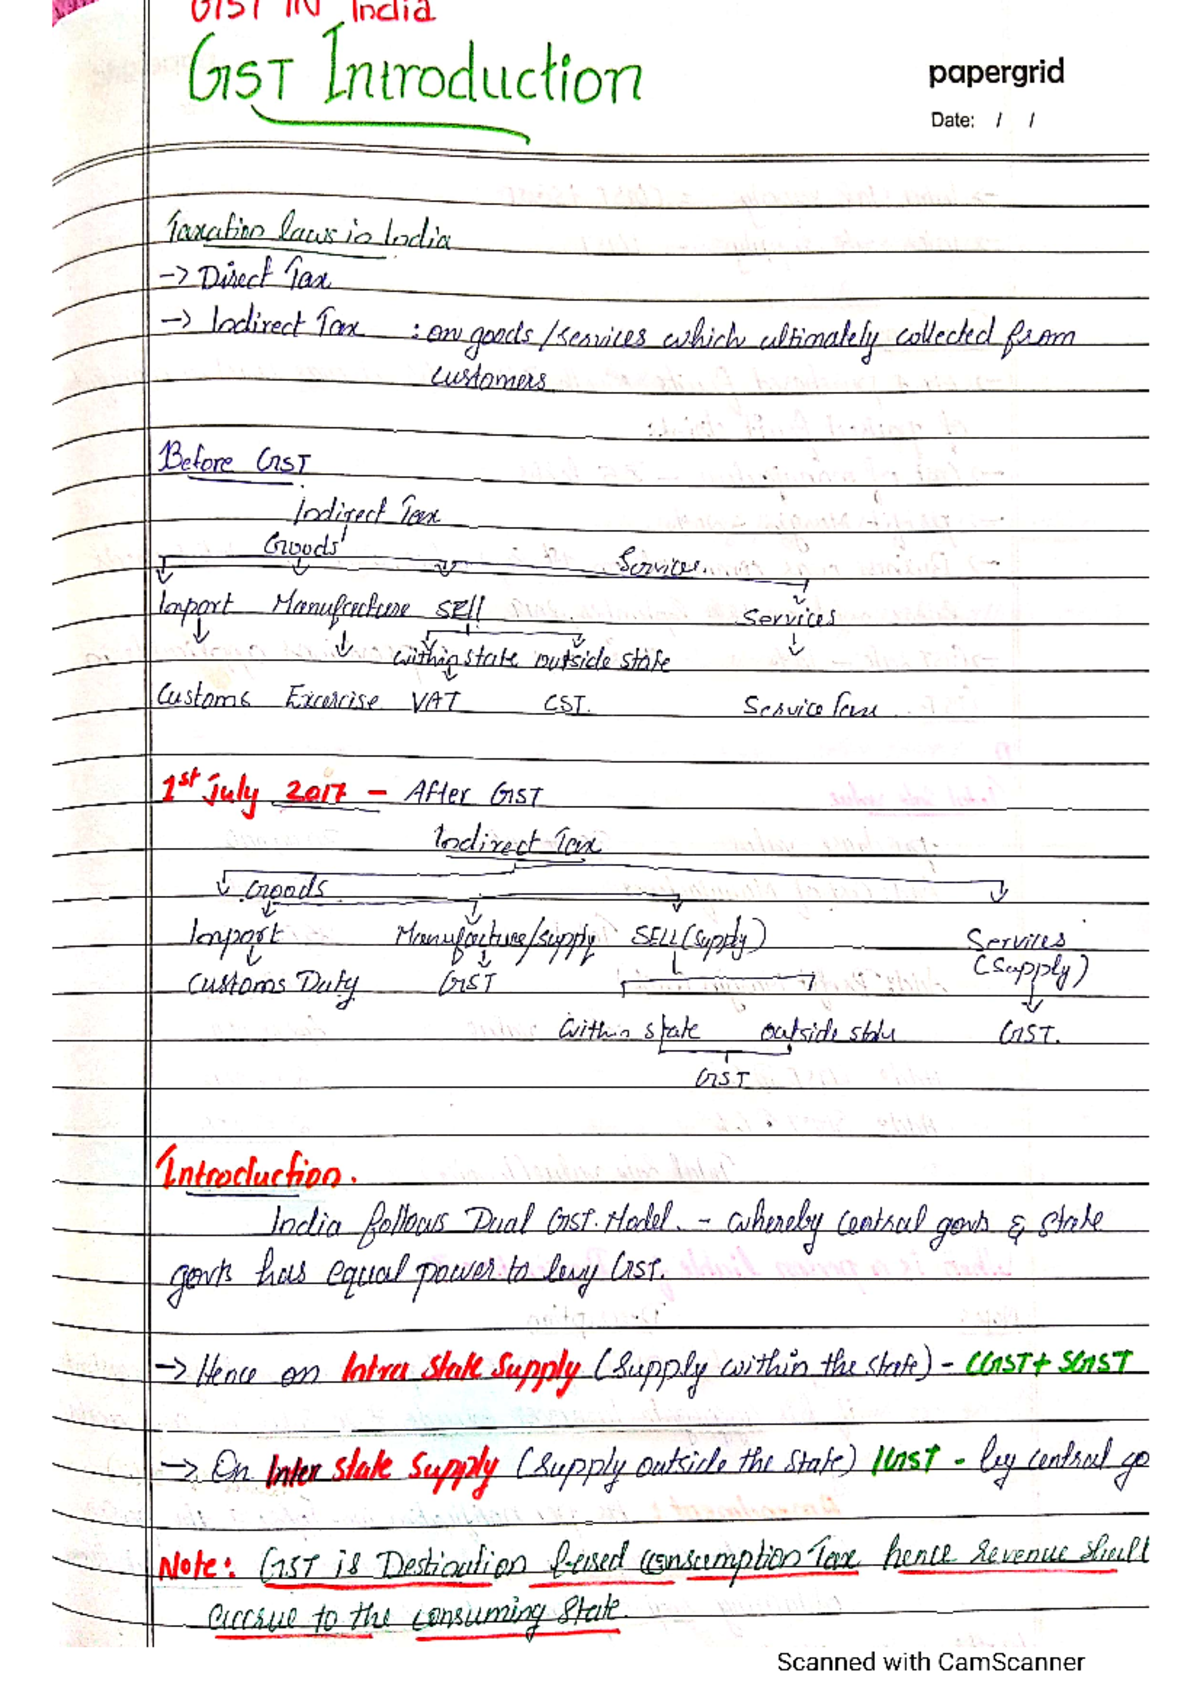 GST IN India
GST Introduction
papergrid
Date: / /
Taxation laws in India
-> Direct Tax
-> Indirect Tax : on goods/services which ultimately collected from
customers
Before GST
Indirect Tax
Goods Services
Import Manufacture SEll Services
within state outside state
Customs Excercise VAT CST. Service Tax
1st July 2017 - After GST
Indirect Tax
Goods
Import Manufacture/supply SELL (supply) Services
(Supply)
Customs Duty GST
within state outside state GST.
GST
Introduction.
India follows Dual GST. Model. - whereby central govts & state
govts has equal power to levy GST.
-> Hence on Intra State Supply (Supply within the state) - CGST + SGST
-> On Inter state Supply (Supply outside the State) IGST - by central go
Note: GST is Destination based consumption Tax hence revenue shall
accrue to the consuming State.
Scanned with CamScanner